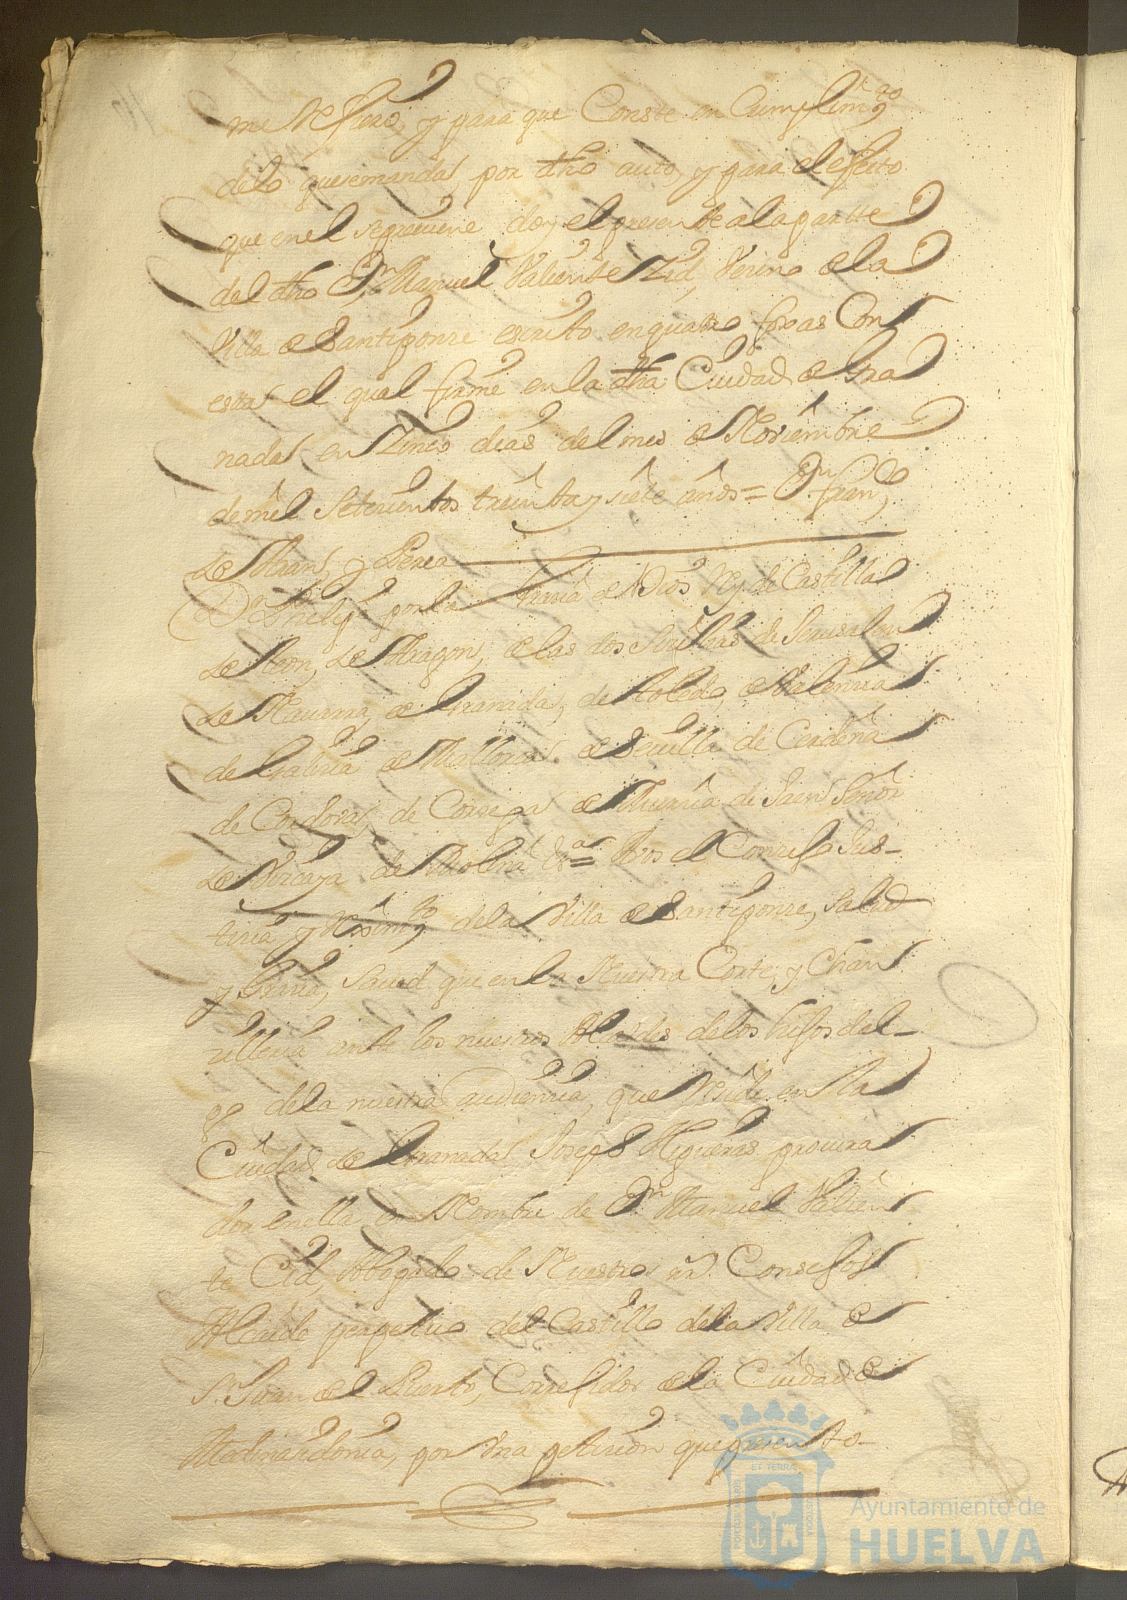 me Refiero, y para que Conste en Cumplimto
delo quesemanda, por dho auto, y para el efecto
que enel sepreviene doy el presente ala partte
del dho Dn Manuel Valiente Zid, Vezino de la
Villa de Santiponze escrito en quatro foxas Con
esta el qual firme en la dha Ciudad de Gra
nada en Zinco dias del mes de Noviembre
demil Setezientos treinta y siete años = Dn Franco
de Arans y Perea
Dn Phelipe por la Gracia de Dios Rey de Castilla
de Leon, de Aragon, de las dos Sicilias de Jerusalen
de Navarra, de Granada, de Toledo, de Valenzia
de Galizia de Mallorca, de Sevilla de Cerdeña
de Cordova, de Corzega de Murzia de Jaen Señor
de Vizcaya de Molina &a = Vos el Conzejo Jus-
tizia y Reximto dela Villa de Santiponze, Salud
y Grazia, Saved que en la Nuestra Corte, y Chan
zilleria ante los nuestros Alcaldes de los hijos dal-
go dela nuestra audienzia, que Reside en la
Ciudad de Granada Joseph Higueras procura
dor en ella en Nombre de Dn Manuel Valien
te Cid, Abogado de Nuestros Rs. Consejos
Alcaide perpetuo del Castillo dela Villa de
Sn. Juan de el Puerto, Correjidor de la Ciudad de
Medinasidonia, por una petizion que presento-
Ayuntamiento de
HUELVA